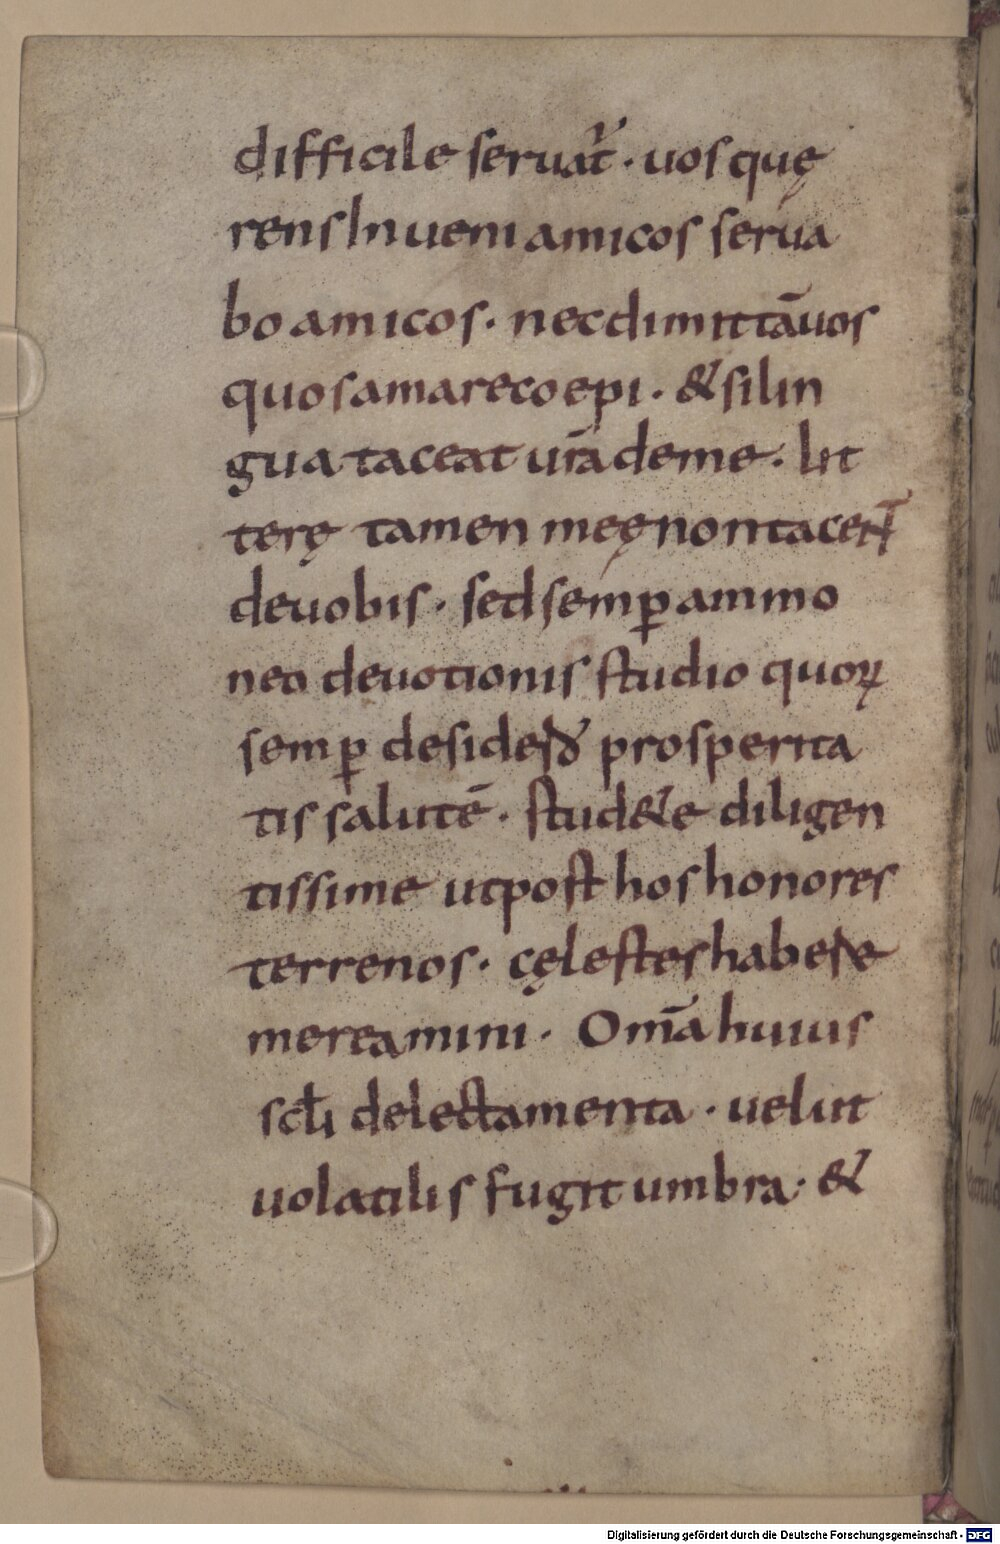 difficile seruat᷑ · uos quę
rens Inueni amicos serua
bo amicos · nec dimittā uos
quos amare coepi · & si lin
gua taceat ur̄a de me · lit
terę tamen meę non tacent
de uobis · sed semꝑ ammo
neo deuotionis studio quoꝝ
semꝑ desidero prosperita
tis salutē · stud&e diligen
tissime ut post hos honores
terrenos · cęlestes habere
mereamini · Om̄a huius
scl̄i delectamenta · uelut
uolatilis fugit umbra · &
Digitalisierung gefördert durch die Deutsche Forschungsgemeinschaft - DFG